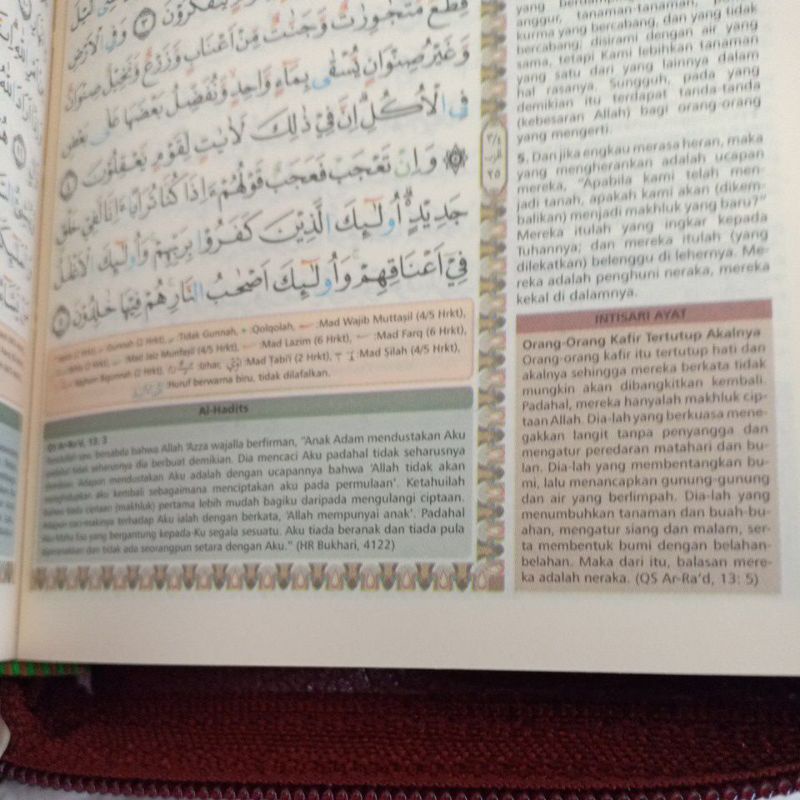 يَتَفَكَّرُوْنَ ۝٣ وَفِى الْاَرْضِ
قِطَعٌ مُّتَجٰوِرٰتٌ وَّجَنّٰتٌ مِّنْ اَعْنَابٍ وَّزَرْعٌ وَّنَخِيْلٌ صِنْوَانٌ
وَّغَيْرُ صِنْوَانٍ يُّسْقٰى بِمَاۤءٍ وَّاحِدٍ وَّنُفَضِّلُ بَعْضَهَا عَلٰى بَعْضٍ
فِى الْاُكُلِ اِنَّ فِيْ ذٰلِكَ لَاٰيٰتٍ لِّقَوْمٍ يَّعْقِلُوْنَ ۝٤
۞ وَاِنْ تَعْجَبْ فَعَجَبٌ قَوْلُهُمْ ءَاِذَا كُنَّا تُرَابًا ءَاِنَّا لَفِيْ خَلْقٍ
جَدِيْدٍ اُولٰۤىِٕكَ الَّذِيْنَ كَفَرُوْا بِرَبِّهِمْ وَاُولٰۤىِٕكَ الْاَغْلٰلُ
فِيْٓ اَعْنَاقِهِمْ وَاُولٰۤىِٕكَ اَصْحٰبُ النَّارِ هُمْ فِيْهَا خٰلِدُوْنَ ۝٥
:Gunnah (2 Hrkt), :Tidak Gunnah, :Qolqolah, :Mad Wajib Muttaṣil (4/5 Hrkt),
:Mad Jaiz Munfaṣil (4/5 Hrkt), :Mad Lazim (6 Hrkt), :Mad Farq (6 Hrkt),
(2 Hrkt), :Izhar, :Mad Tabi'i (2 Hrkt), :Mad Silah (4/5 Hrkt),
:Huruf berwarna biru, tidak dilafalkan.
Al-Hadits
QS Ar-Ra'd, 13: 3
Rasulullah saw. bersabda bahwa Allah 'Azza wajalla berfirman, "Anak Adam mendustakan Aku
padahal tidak seharusnya dia berbuat demikian. Dia mencaci Aku padahal tidak seharusnya
demikian. Adapun mendustakan Aku adalah dengan ucapannya bahwa 'Allah tidak akan
menghidupkan aku kembali sebagaimana menciptakan aku pada permulaan'. Ketahuilah
bahwa tiada ciptaan (makhluk) pertama lebih mudah bagiku daripada mengulangi ciptaan.
Adapun caci-makinya terhadap Aku ialah dengan berkata, 'Allah mempunyai anak'. Padahal
Aku Maha Esa yang bergantung kepada-Ku segala sesuatu. Aku tiada beranak dan tiada pula
diperanakkan dan tidak ada seorangpun setara dengan Aku." (HR Bukhari, 4122)
٣/٤
الحزب
٢٥
anggur, tanaman-tanaman,
kurma yang bercabang, dan yang tidak
bercabang; disirami dengan air yang
sama, tetapi Kami lebihkan tanaman
yang satu dari yang lainnya dalam
hal rasanya. Sungguh, pada yang
demikian itu terdapat tanda-tanda
(kebesaran Allah) bagi orang-orang
yang mengerti.
5. Dan jika engkau merasa heran, maka
yang mengherankan adalah ucapan
mereka, "Apabila kami telah men-
jadi tanah, apakah kami akan (dikem-
balikan) menjadi makhluk yang baru?"
Mereka itulah yang ingkar kepada
Tuhannya; dan mereka itulah (yang
dilekatkan) belenggu di lehernya. Me-
reka adalah penghuni neraka, mereka
kekal di dalamnya.
INTISARI AYAT
Orang-Orang Kafir Tertutup Akalnya
Orang-orang kafir itu tertutup hati dan
akalnya sehingga mereka berkata tidak
mungkin akan dibangkitkan kembali.
Padahal, mereka hanyalah makhluk cip-
taan Allah. Dia-lah yang berkuasa mene-
gakkan langit tanpa penyangga dan
mengatur peredaran matahari dan bu-
lan. Dia-lah yang membentangkan bu-
mi, lalu menancapkan gunung-gunung
dan air yang berlimpah. Dia-lah yang
menumbuhkan tanaman dan buah-bu-
ahan, mengatur siang dan malam, ser-
ta membentuk bumi dengan belahan-
belahan. Maka dari itu, balasan mere-
ka adalah neraka. (QS Ar-Ra'd, 13: 5)